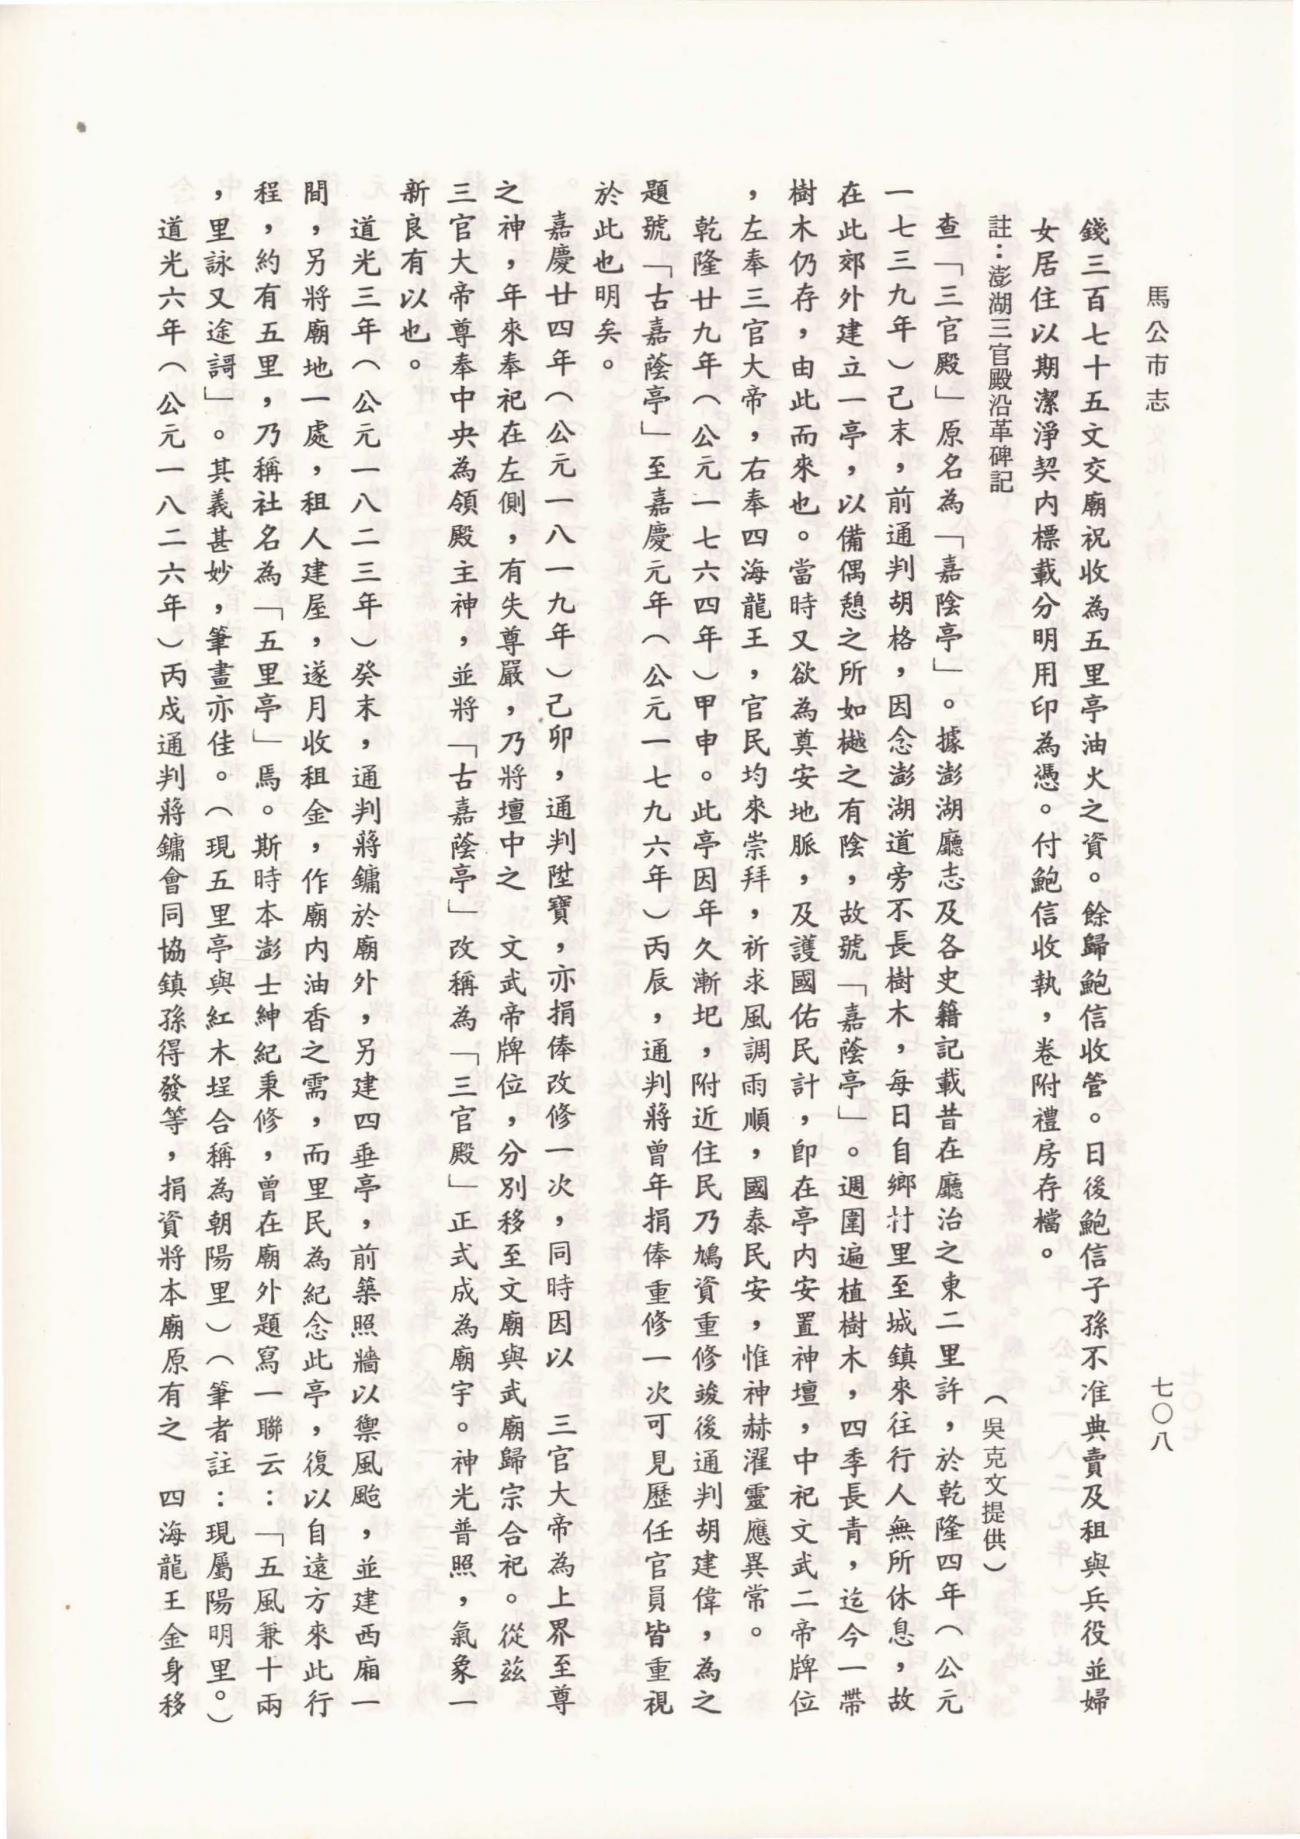 馬公市志
七〇八
錢三百七十五文交廟祝收為五里亭油火之資。餘歸鮑信收管。日後鮑信子孫不准典賣及租與兵役並婦
女居住以期潔淨契内標載分明用印為憑。付鮑信收執，卷附禮房存檔。
註：澎湖三官殿沿革碑記
（吳克文提供）
查「三官殿」原名為「嘉陰亭」。據澎湖廳志及各史籍記載昔在廳治之東二里許，於乾隆四年（公元
一七三九年）己末，前通判胡格，因念澎湖道旁不長樹木，每日自鄉村里至城鎮來往行人無所休息，故
在此郊外建立一亭，以備偶憩之所如樾之有陰，故號「嘉蔭亭」。週圍遍植樹木，四季長青，迄今一帶
樹木仍存，由此而來也。當時又欲為奠安地脈，及護國佑民計，卽在亭内安置神壇，中祀文武二帝牌位
，左奉三官大帝，右奉四海龍王，官民均來崇拜，祈求風調雨順，國泰民安，惟神赫濯靈應異常。
乾隆廿九年（公元一七六四年）甲申。此亭因年久漸圯，附近住民乃鳩資重修竣後通判胡建偉，為之
題號「古嘉蔭亭」至嘉慶元年（公元一七九六年）丙辰，通判蔣曾年捐俸重修一次可見歷任官員皆重視
於此也明矣。
嘉慶廿四年（公元一八一九年）己卯，通判陞寶，亦捐俸改修一次，同時因以　三官大帝為上界至尊
之神，年來奉祀在左側，有失尊嚴，乃將壇中之　文武帝牌位，分別移至文廟與武廟歸宗合祀。從茲
三官大帝尊奉中央為領殿主神，並將「古嘉蔭亭」改稱為「三官殿」正式成為廟宇。神光普照，氣象一
新良有以也。
道光三年（公元一八二三年）癸末，通判蔣鏞於廟外，另建四垂亭，前築照牆以禦風颱，並建西廂一
間，另將廟地一處，租人建屋，遂月收租金，作廟内油香之需，而里民為紀念此亭，復以自遠方來此行
程，約有五里，乃稱社名為「五里亭」焉。斯時本澎士紳紀秉修，曾在廟外題寫一聯云：「五風兼十兩
，里詠又途謌」。其義甚妙，筆畫亦佳。（現五里亭與紅木埕合稱為朝陽里）（筆者註：現屬陽明里。）
道光六年（公元一八二六年）丙戍通判蔣鏞會同協鎮孫得發等，捐資將本廟原有之　四海龍王金身移